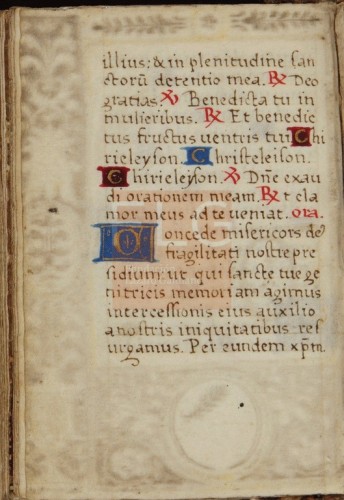 illius: & in plenitudine san
ctorũ detentio mea. ℟ Deo
gratias. ℣ Benedicta tu in
mulieribus. ℟ Et benedic
tus fructus ventris tui. Chi
rieleyson. Christeleison.
Chirieleison. ℣ Dñe exau
di orationem meam. ℟ et cla
mor meus ad te veniat. ora.
Concede misericors de9
fragilitati nostre pre
sidium: ut qui sancte tue ge
nitricis memoriam agimus
intercessionis eius auxilio
a nostris iniquitatibus res
urgamus. Per eundem xp̃m.